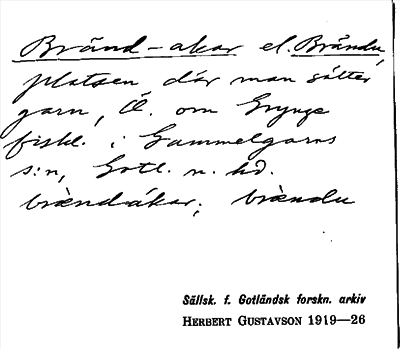 Bränd-akar el. Brändu,
platsen där man sätter
garn, Ö. om Grynge
fiskl. i Gammelgarns
s:n, Gotl. n. hd.
brændákar; brændu
Sällsk. f. Gotländsk forskn. arkiv
HERBERT GUSTAVSON 1919—26